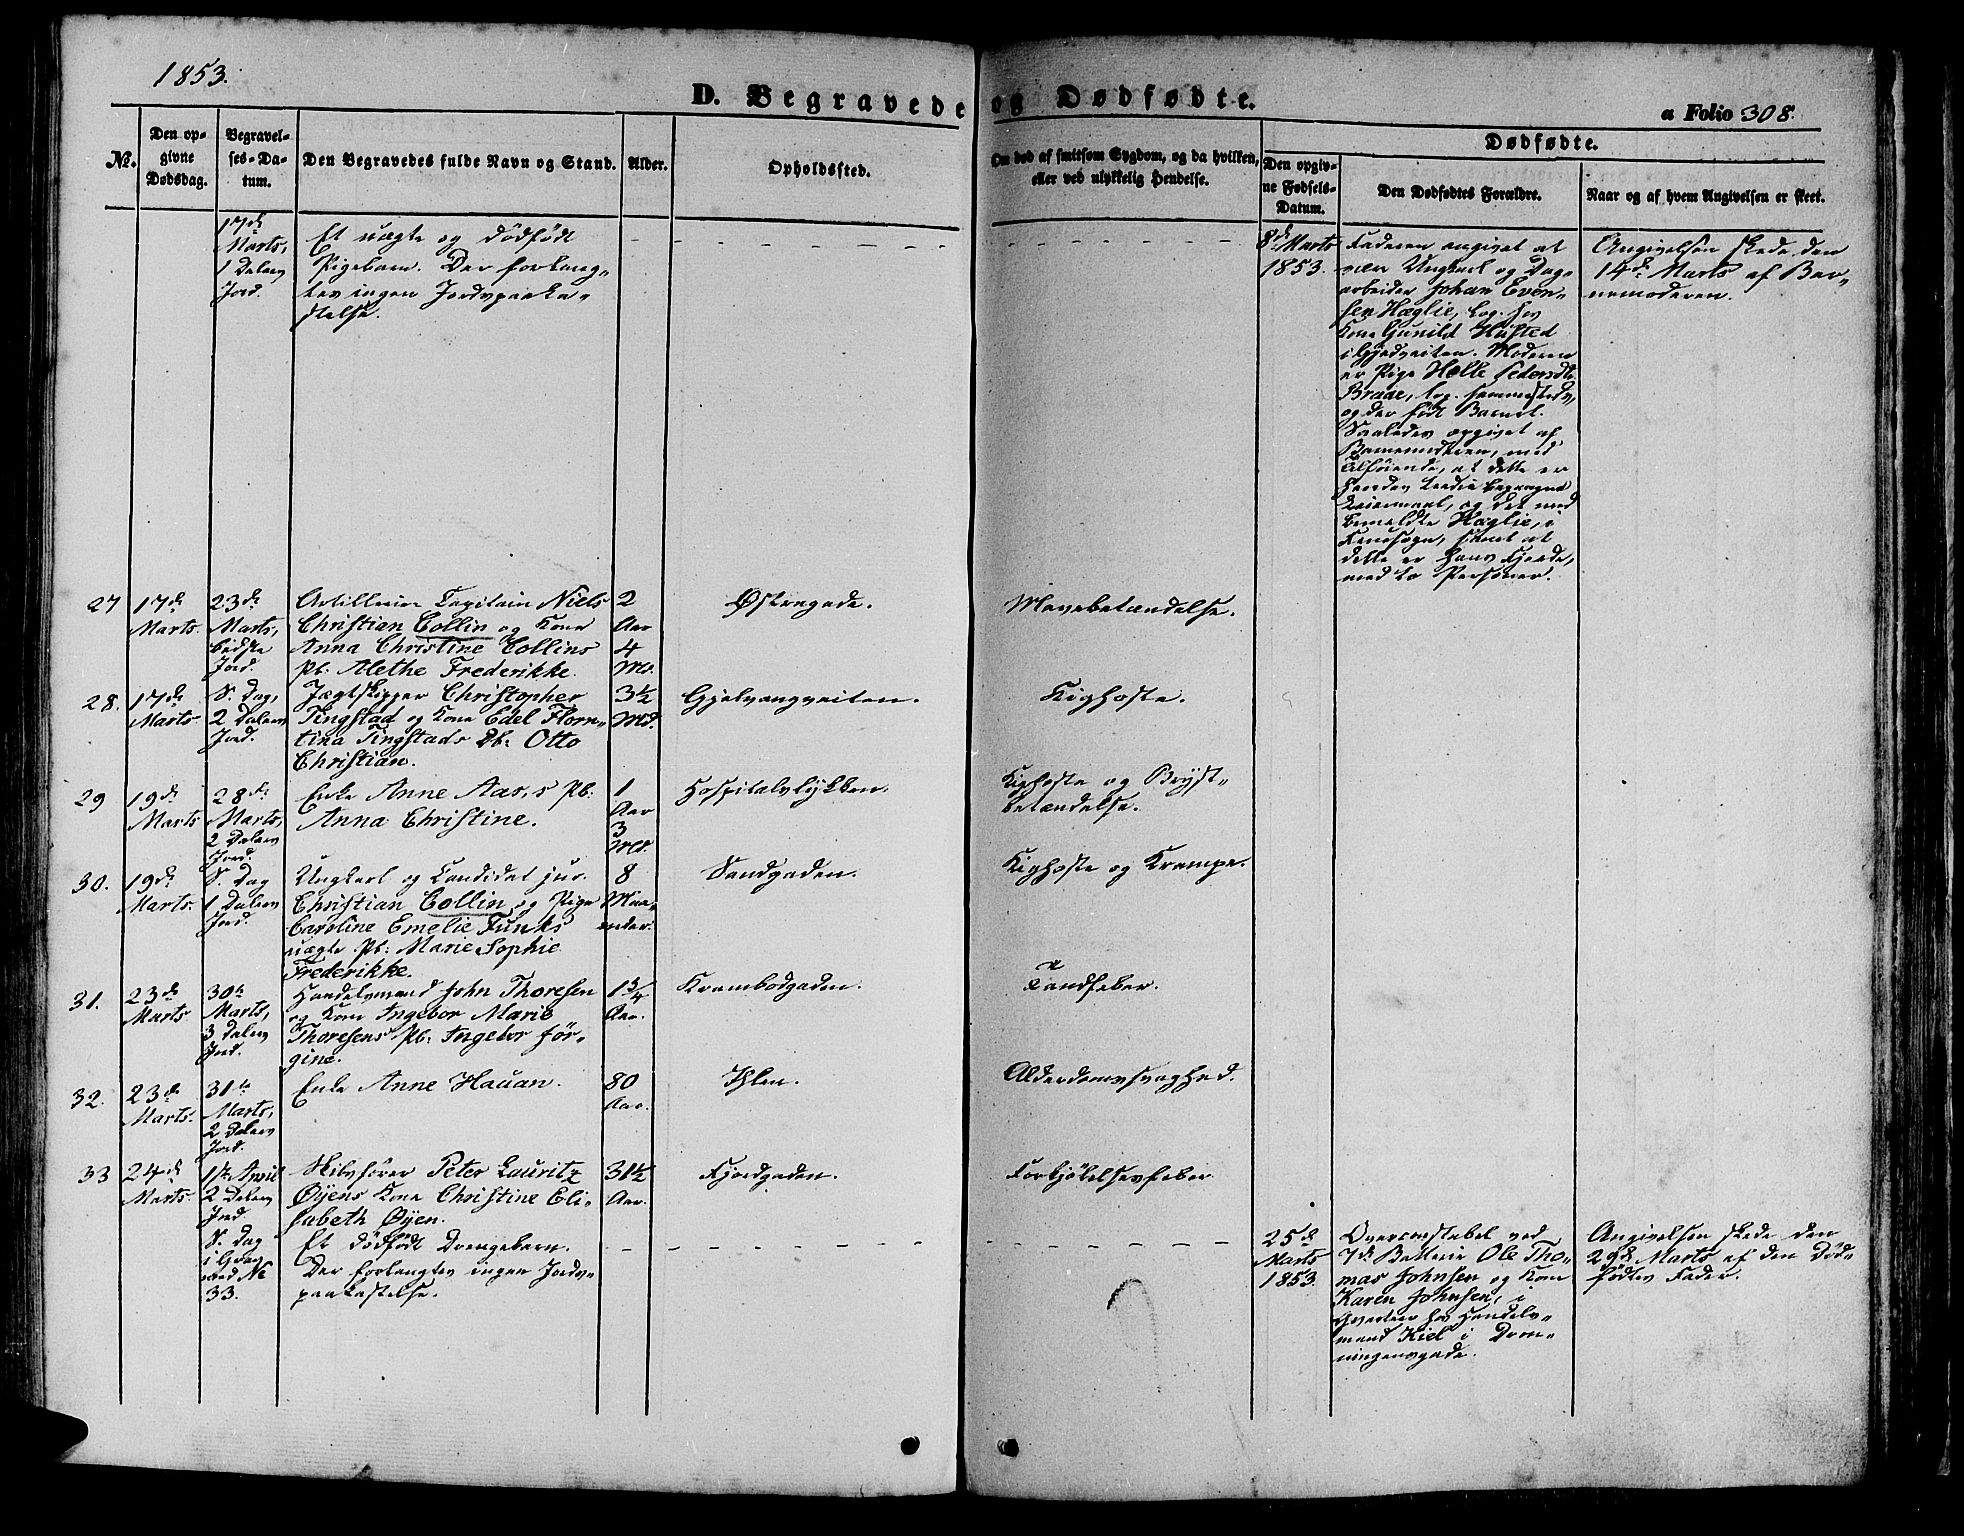 1853.
D. Begravede og Dødfødte.
a Folio 308.
No.
Den op-
givne
Dødsdag.
Begravel-
ses-Da-
tum.
Den Begravedes fulde Navn og Stand.
Alder.
Opholdssted.
Om død af smitsom Sygdom, og da hvilken,
eller ved ulykkelig Hendelse.
Dødfødte.
Den opgiv-
ne Fødsels-
Datum.
Den Dødfødtes Forældre.
Naar og af hvem Angivelsen er skeet.
17de
Marts,
1 Dalers
Jord.
Et uægte og dödfödt
Pigebarn. Der forlang-
tes ingen Jordspaaka-
stelse.
8de Marts
1853.
Faderen angivet at
være Ungkarl og Dag-
arbeider Johan Even-
sen Hæglie, log. hos
Kone Gunild Husted
i Gjedveiten. Moderen
er Pige Helle Pedersdtr
Braae, log. sammesteds,
og der födt Barnet.
Saaledes opgivet af
Barnemoderen, med
Tilföiende, at dette er
hendes tredie begangne
Leiermaal, og det med
bemeldte Hæglie, i
samt at
dette er hans Fjerde,
med to Personer.
Angivelsen skede den
14de Marts af Bar-
nemoderen.
27
17de
Marts.
23de
Marts,
bedste
Jord.
Artillerie Capitain Niels
Christian Collin og Kone
Anna Christine Collins
Pb. Alethe Frederikke.
2
Aar
4
Md.
Østregade.
Mavebetændelse.
28.
17de
Marts
S. Dag,
2 Dalers
Jord.
Jægtskipper Christopher
Tingstad og Kone Edel Floren-
tina Tingstads Db: Otto
Christian.
3½
Md.
Gjelvangveiten.
Kighoste.
29
19de
Marts
28de
Marts,
2 Dalers
Jord.
Enke Anne Aas,s Pb:
Anna Christine.
1
Aar
3
Md.
Hospitalslykken.
Kighoste og Bryst-
betændelse.
30.
19de
Marts.
S. Dag
1 Dalers
Jord.
Ungkarl og Candidat jur.
Christian Collin og Pige
Caroline Emelie Funks
uægte Pb: Marie Sophie
Frederikke.
8
Maa-
neder.
Sandgaden.
Kighoste og Krampe.
31.
23de
Marts
30te
Marts,
3 Dalers
Jord.
Handelsmand John Thoresen
og Kone Ingebor Marie
Thoresens Pb: Ingebor Jör-
gine.
1¾
Aar.
Krambodgaden.
Tandfeber.
32.
23de
Marts.
31te
Marts,
2 Dalers
Jord.
Enke Anne Hauan.
80
Aar.
Ihlen.
Alderdomssvaghed.
33
24de
Marts.
1ste April
2 Dalers
Jord.
Skibsfører Peter Lauritz
Øyens Kone Christine Eli-
sabeth Øyen.
31½
Aar.
Fjordgaden.
Forkjölelsesfeber.
S. Dag
i Grav
med No
33.
Et dödfödt Drengebarn.
Der forlangtes ingen Jords-
paakastelse.
25de
Marts
1853.
Overconstabel ved
7de Batterie Ole Tho-
mas Johnsen og Kone
Karen Johnsen, i
Qvarteer hos Handels-
mand Kiel i Dron-
ningensgade.
Angivelsen skede den
29de Marts af den Död-
födtes Fader.